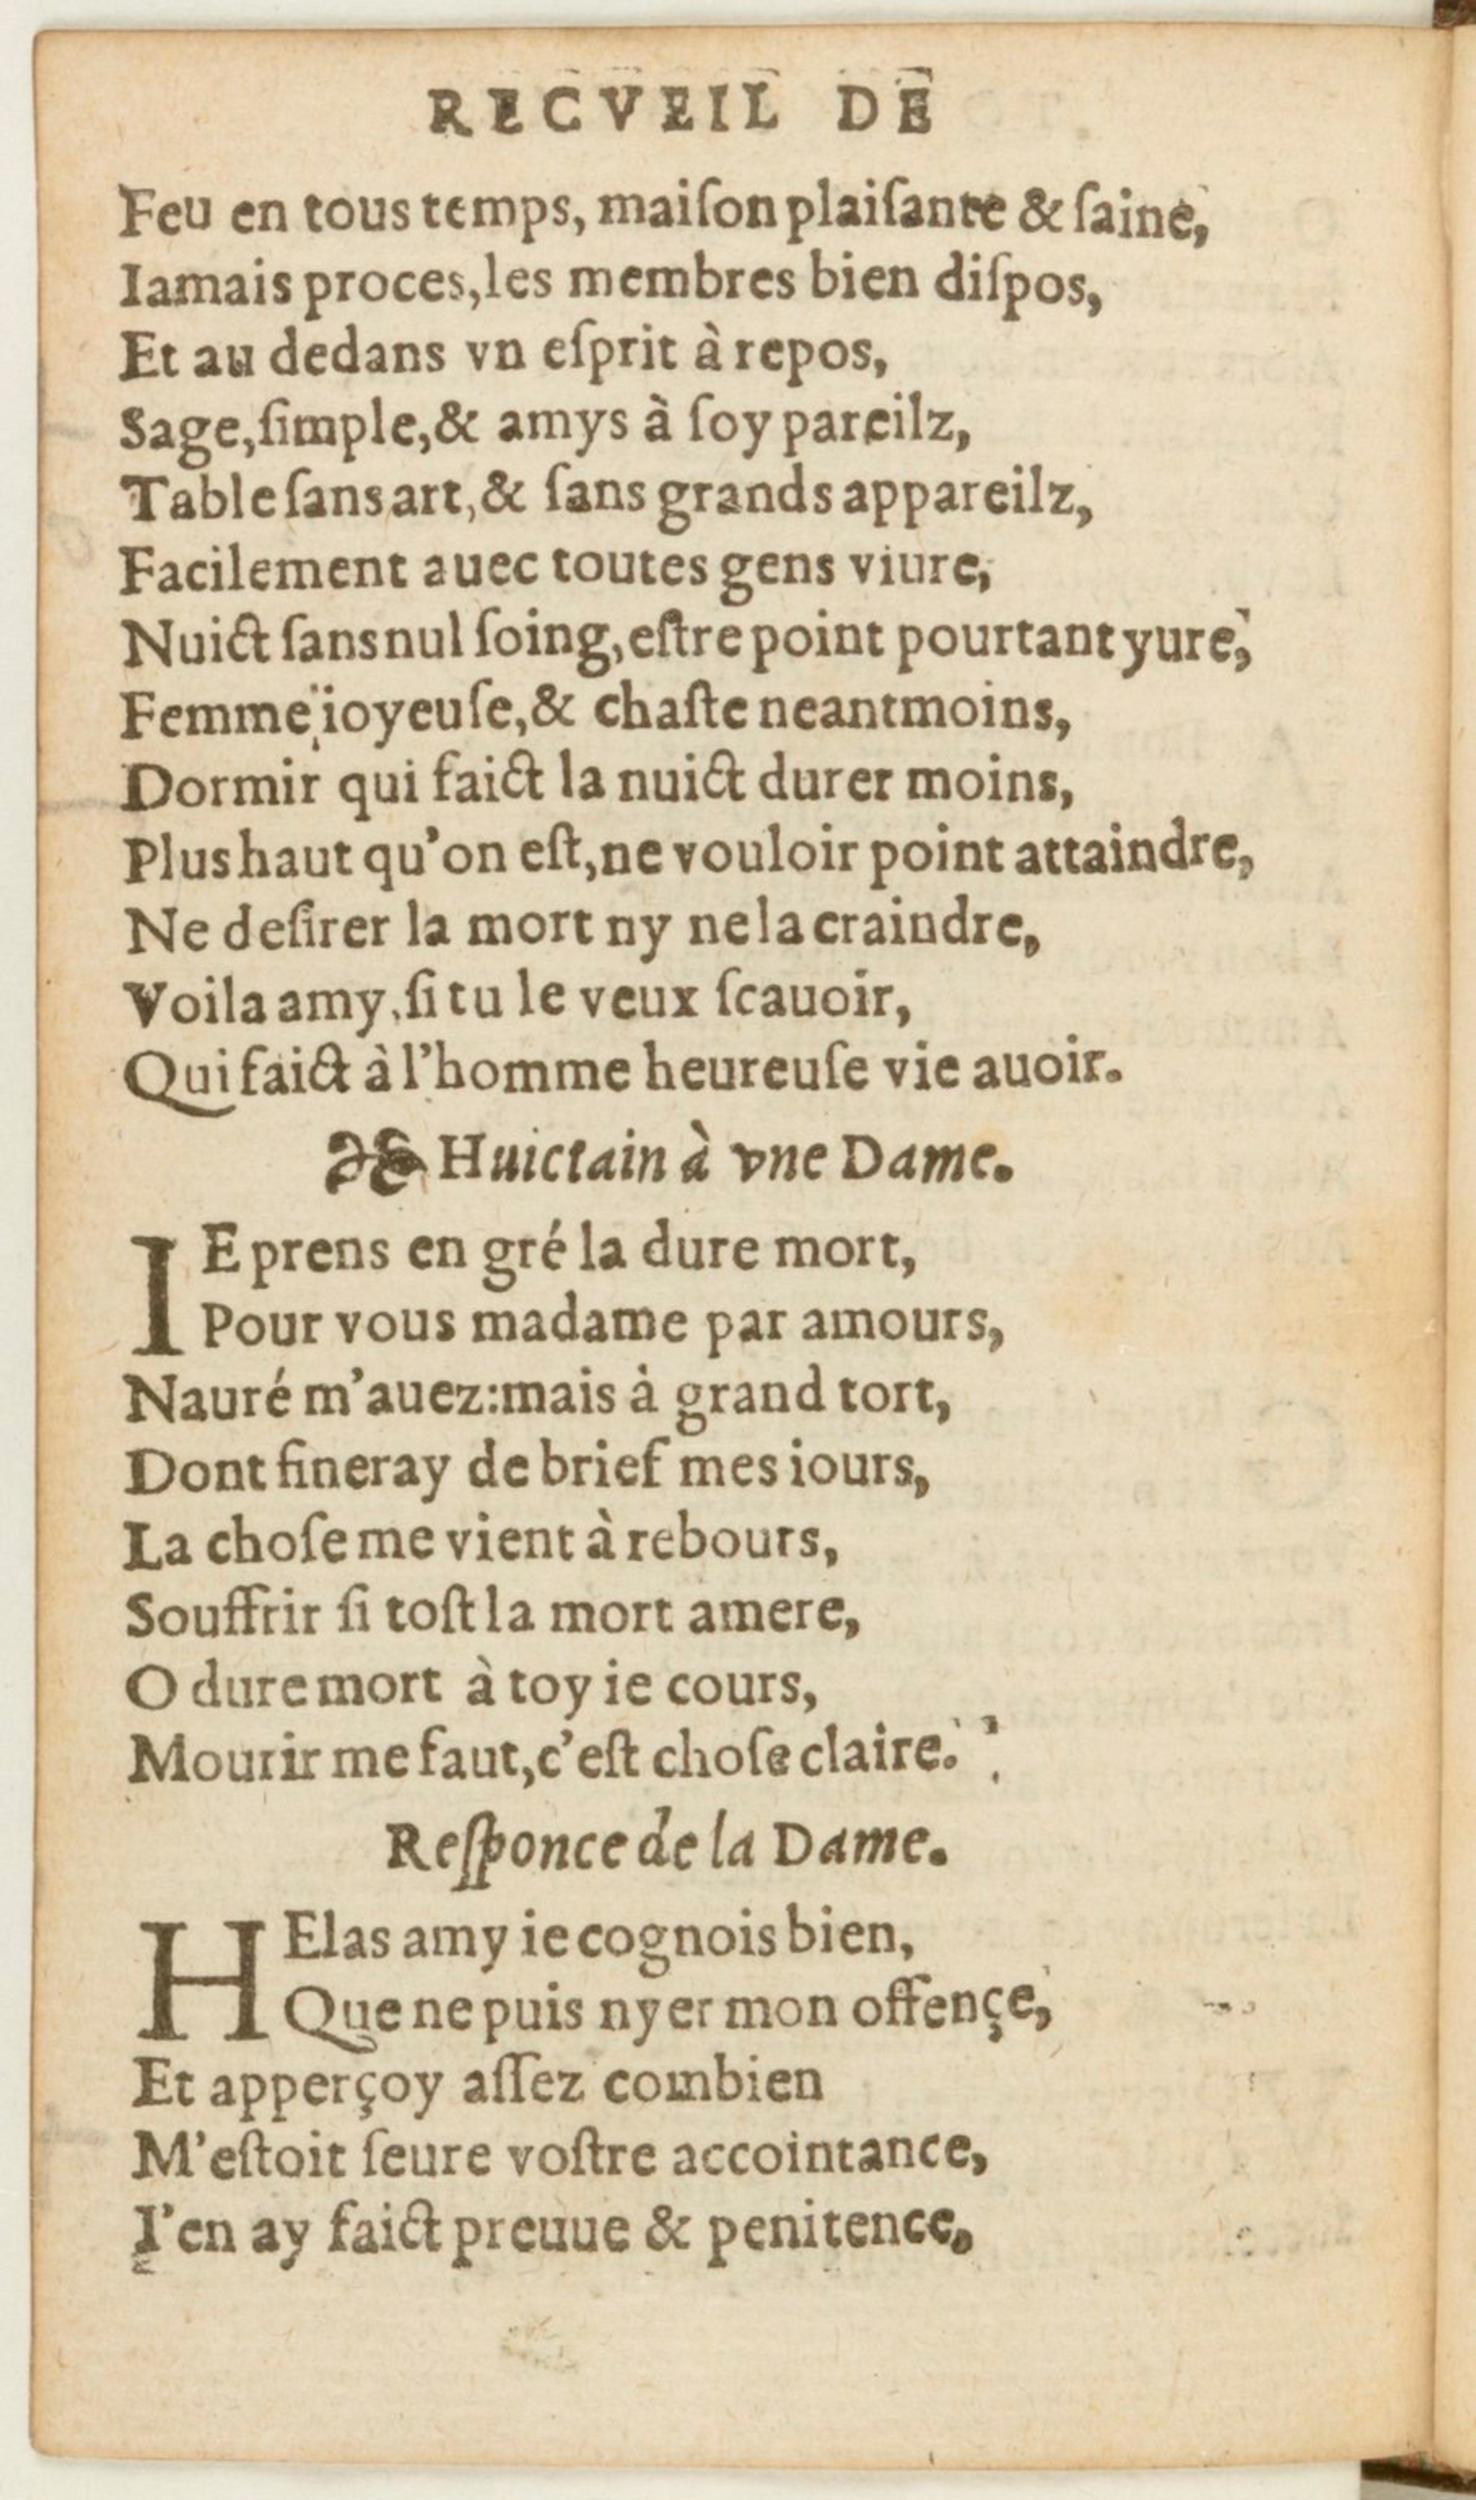 RECVEIL DE
Feu en tous temps, maiſon plaiſante & ſaine,
Iamais proces, les membres bien diſpos,
Et au dedans vn eſprit à repos,
Sage, ſimple, & amys à ſoy pareilz,
Table ſans art, & ſans grands appareilz,
Facilement auec toutes gens viure,
Nuict ſans nul ſoing, eſtre point pourtant yure,
Femme ioyeuſe, & chaſte neantmoins,
Dormir qui faict la nuict durer moins,
Plus haut qu'on eſt, ne vouloir point attaindre,
Ne deſirer la mort ny ne la craindre,
Voila amy, ſi tu le veux ſcauoir,
Qui faict à l'homme heureuſe vie auoir.
Huictain à vne Dame.
IE prens en gré la dure mort,
Pour vous madame par amours,
Nauré m'auez: mais à grand tort,
Dont fineray de brief mes iours,
La choſe me vient à rebours,
Souffrir ſi toſt la mort amere,
O dure mort à toy ie cours,
Mourir me faut, c'eſt choſe claire.
Reſponce de la Dame.
HElas amy ie cognois bien,
Que ne puis nyer mon offençe,
Et apperçoy aſſez combien
M'eſtoit ſeure voſtre accointance,
I'en ay faict preuue & penitence,